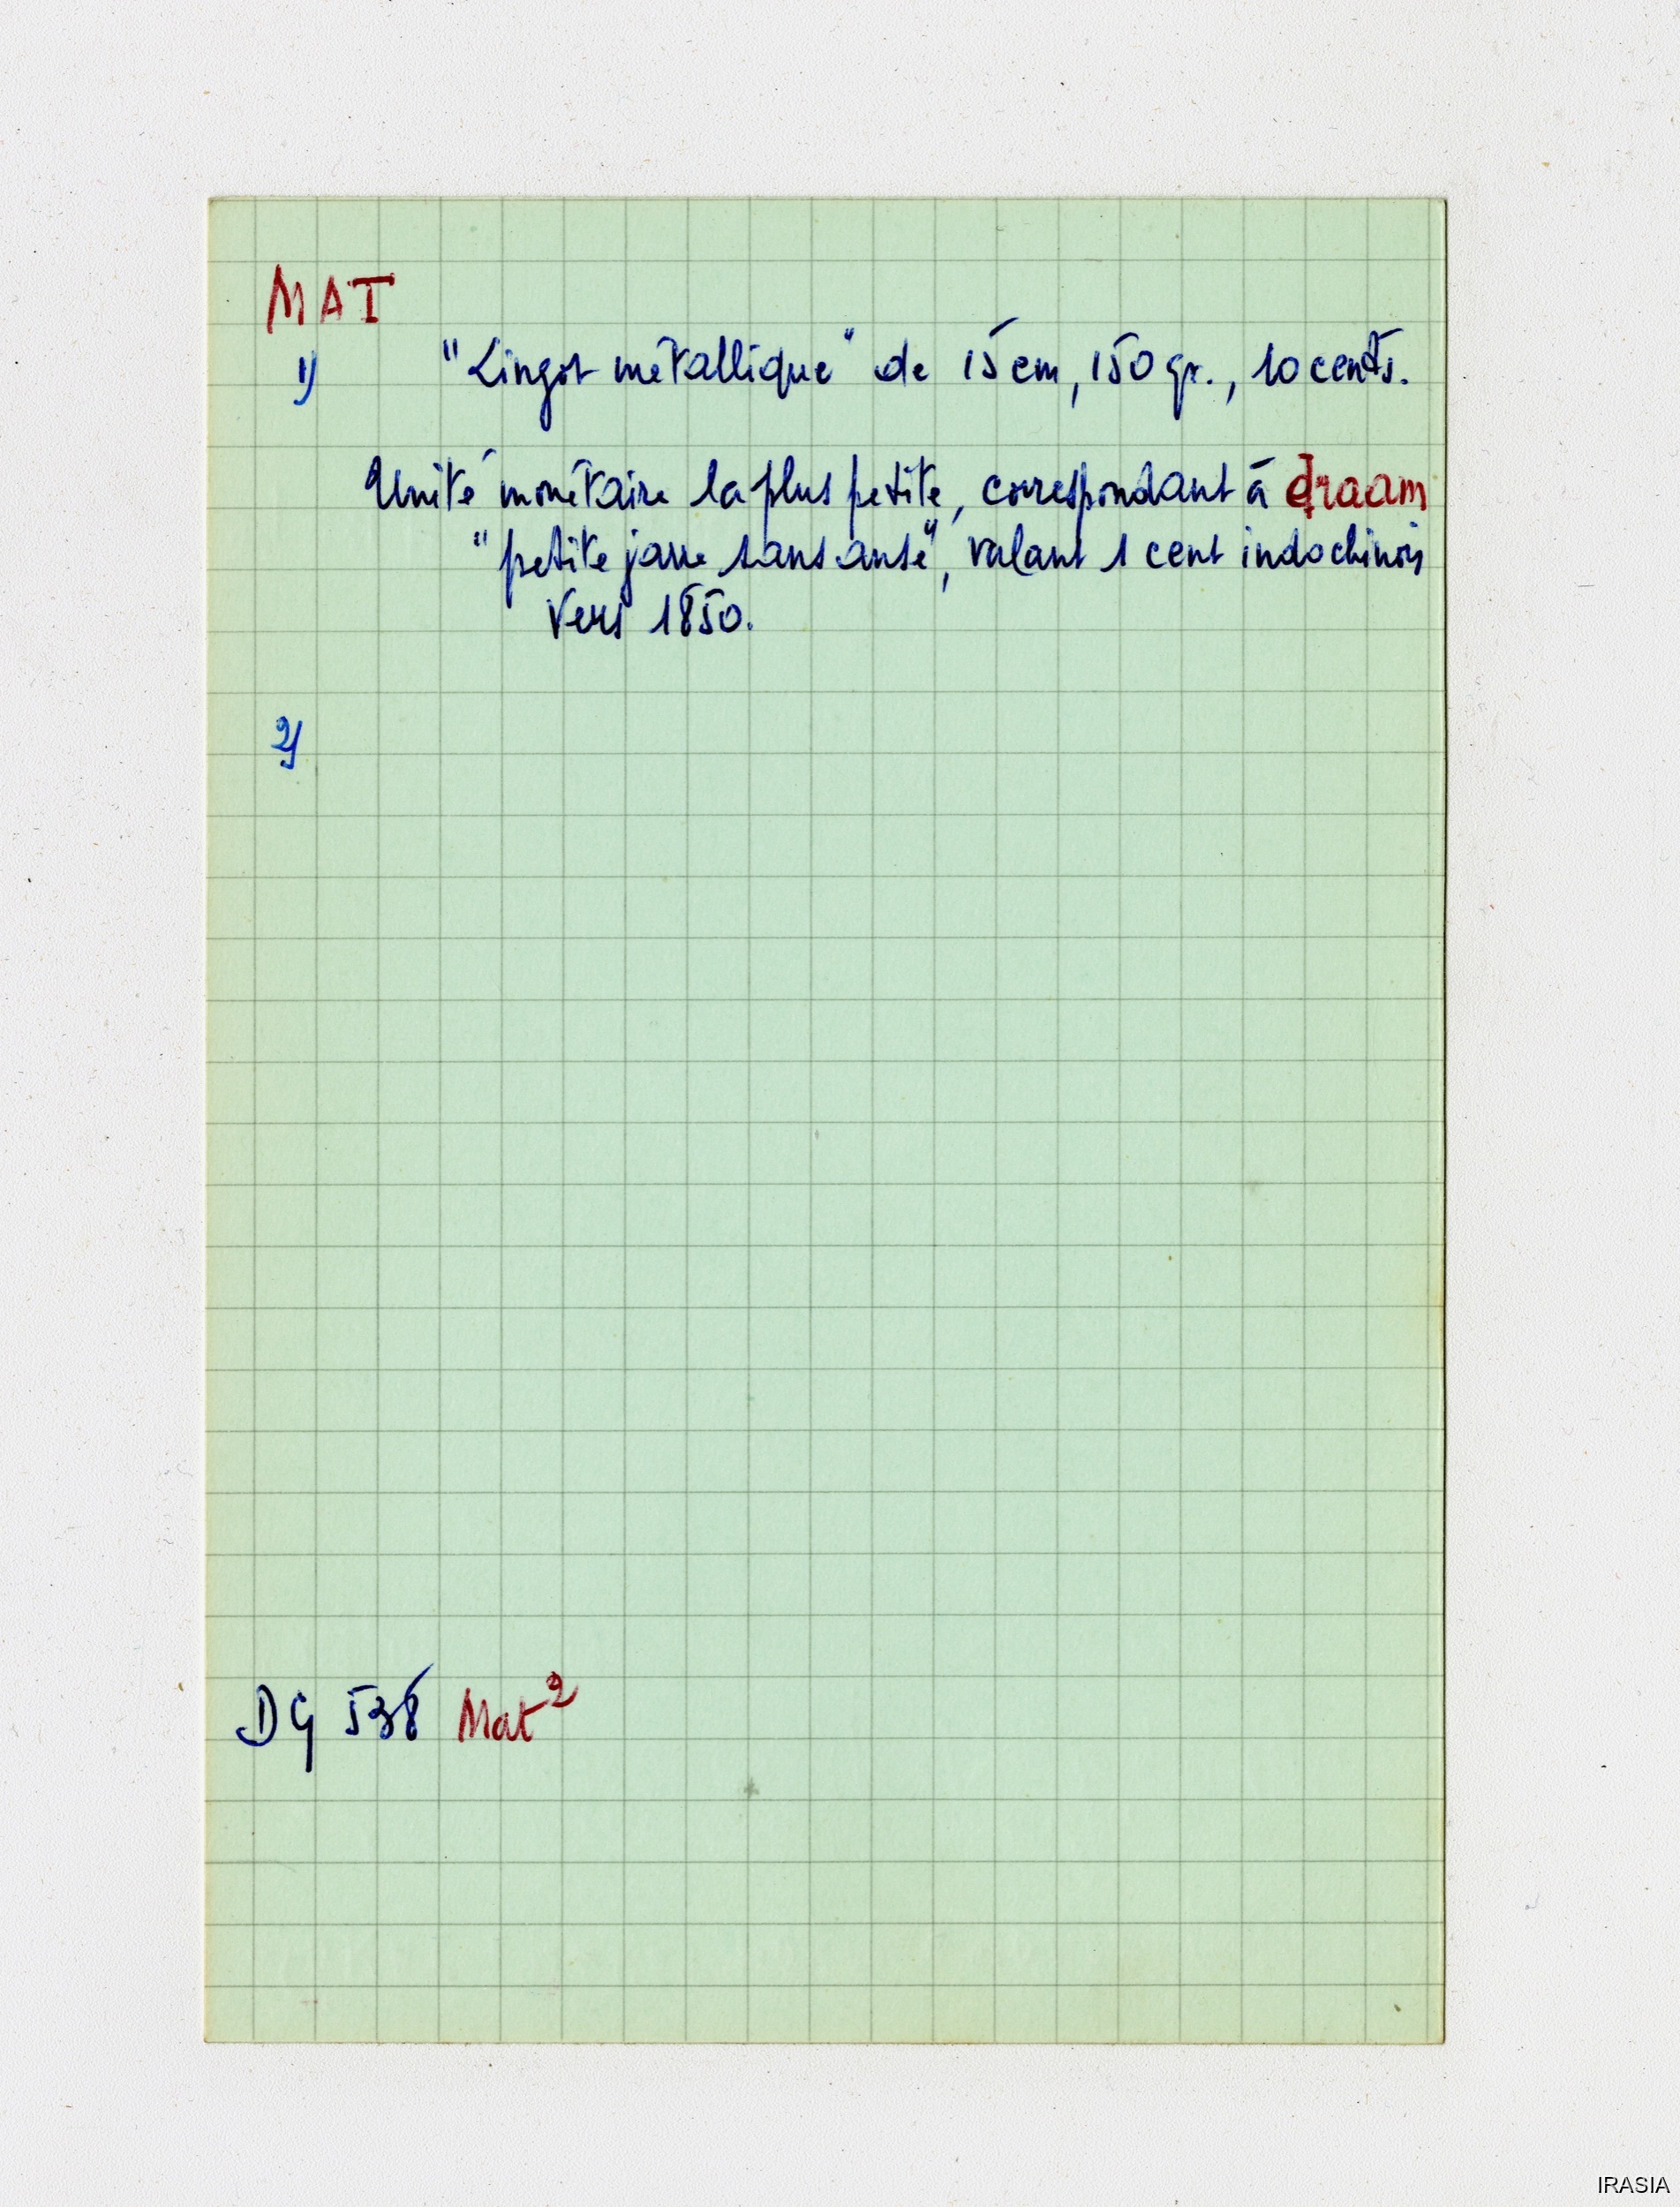 MAT
1) "Lingot métallique" de 15 cm, 150 gr., 10 cents.
Unité monétaire la plus petite, correspondant à draam
"petite jarre sans anse", valant 1 cent indochinois
vers 1850.
2)
DG 538 Mat²
IRASIA